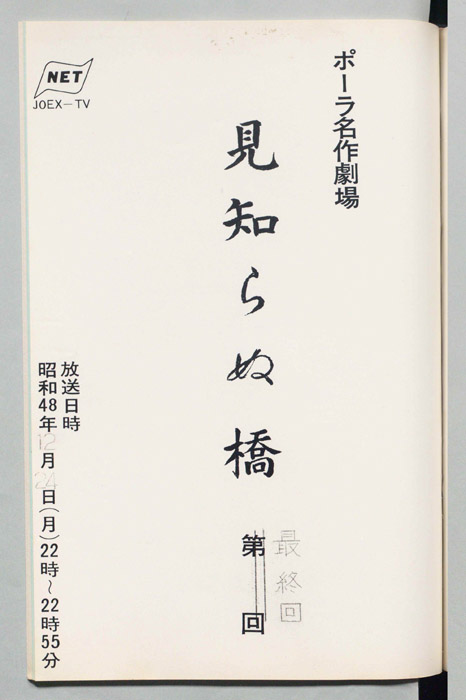 ポーラ名作劇場
見知らぬ橋
第 回
最終回
NET
JOEX-TV
放送日時
昭和48年12月24日(月)22時~22時55分